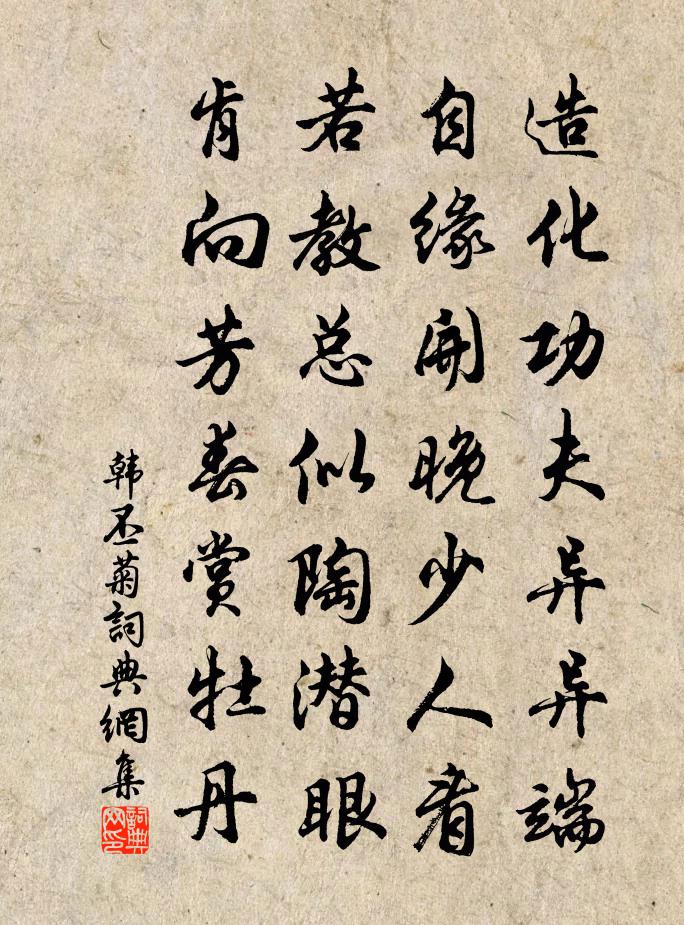 造化功夫异异端
自缘開晚少人看
若教总似陶潜眼
肯向芳春赏牡丹
韩丕菊詞典網集
詞典网印